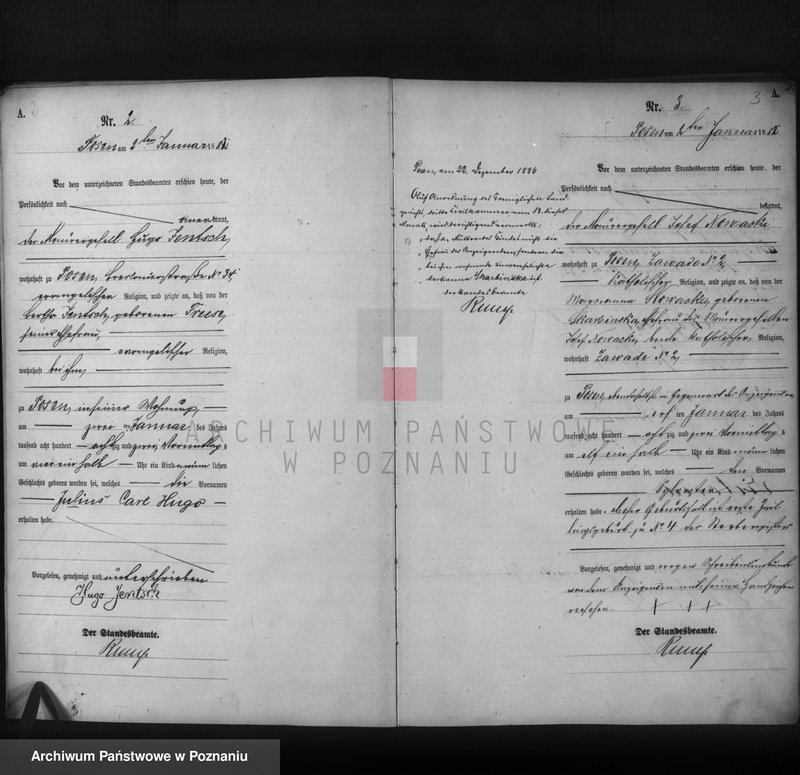 A.
2
Nr. 2
Posen am 2ten Januar 1882
Vor dem unterzeichneten Standesbeamten erschien heute, der
Persönlichkeit nach
anerkannt,
der Maurergesell Hugo Jentsch,
wohnhaft zu Posen, Breslauerstraße No 34,
evangelischer Religion, und zeigte an, daß von der
Bertha Jentsch, geborenen
seiner Ehefrau,
evangelischer Religion,
wohnhaft bei ihm,
zu Posen, in seiner Wohnung,
am zwei ten Januar des Jahres
tausend acht hundert achtzig und zwei, Vormittag s
um ein halb Uhr ein Kind männlichen
Geschlechts geboren worden sei, welches die Vornamen
Julius Carl Hugo
erhalten habe.
Vorgelesen, genehmigt und unterschrieben
Hugo Jentsch
Der Standesbeamte.
Rump.
Posen, am 22. Dezember 1886
Auf Anordnung des Königlichen Land
gerichts, dritte Civilkammer vom 13. dieses
Monats, wird berichtigend vermerkt,
daß die Mutter des Kindes nicht die
Ehefrau des Anzeigenden, sondern die
bei ihm wohnende unverehelichte
Marianna Skarbinska
der Standesbeamte
Rump
A.
3
Nr. 3.
Posen am 2ten Januar 1882
Vor dem unterzeichneten Standesbeamten erschien heute, der
Persönlichkeit nach
bekannt,
der Maurergesell Josef Nowacki
wohnhaft zu Posen, Zawade No 2,
katholischer Religion, und zeigte an, daß von der
Marianna Nowacka, geborenen
Skarbinska, Ehefrau des Maurergesellen
Josef Nowacki, beide katholischer Religion,
wohnhaft Zawade No 2,
zu Posen, ebendaselbst in Gegenwart des Anzeigenden
am ersten Januar des Jahres
tausend acht hundert achtzig und zwei Vormittag s
um elf ein halb Uhr ein Kind männlichen
Geschlechts geboren worden sei, welches den Vornamen
Sylvester
erhalten habe. Dieser Geburtsfall ist erste Zwil
lingsgeburt zu No 4 des Sterberegisters
Vorgelesen, genehmigt und wegen Schreibensunkunde
von dem Anzeigenden mit seinem Handzeichen
versehen. + + +
Der Standesbeamte.
Rump.
ARCHIWUM PAŃSTWOWE
W POZNANIU
Archiwum Państwowe w Poznaniu